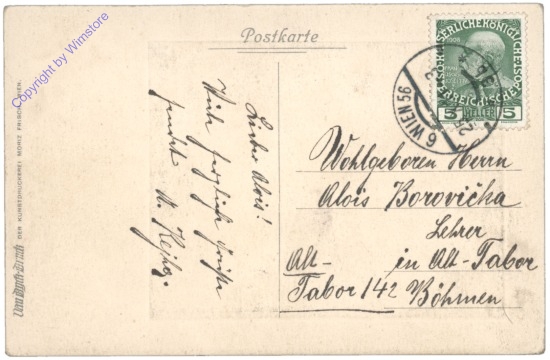 Postkarte
Copyright by Wimstore
DER KUNSTDRUCKEREI MORIZ FRISCH, WIEN.
Lieber Alois!
Viele herzliche Grüße
sendet
KAISERLICHE KÖNIGLICHE
ÖSTERREICHISCHE
5 HELLER 5
6 WIEN 56
Wohlgeboren Herrn
Alois Borovička
Lehrer
in Alt-Tabor
Alt-
Tabor 142
Böhmen